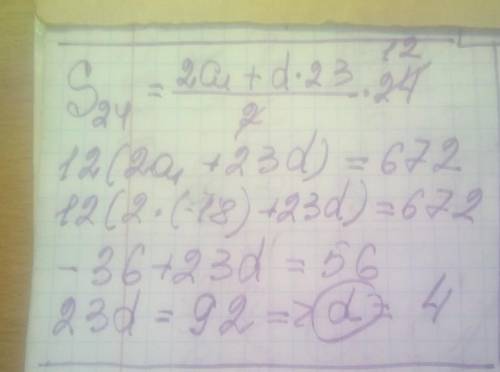 S₂₄ = (2a₁ + d·23)/2 · 24 12
12(2a₁ + 23d) = 672
12(2·(-18) + 23d) = 672
-36 + 23d = 56
23d = 92 => d = 4